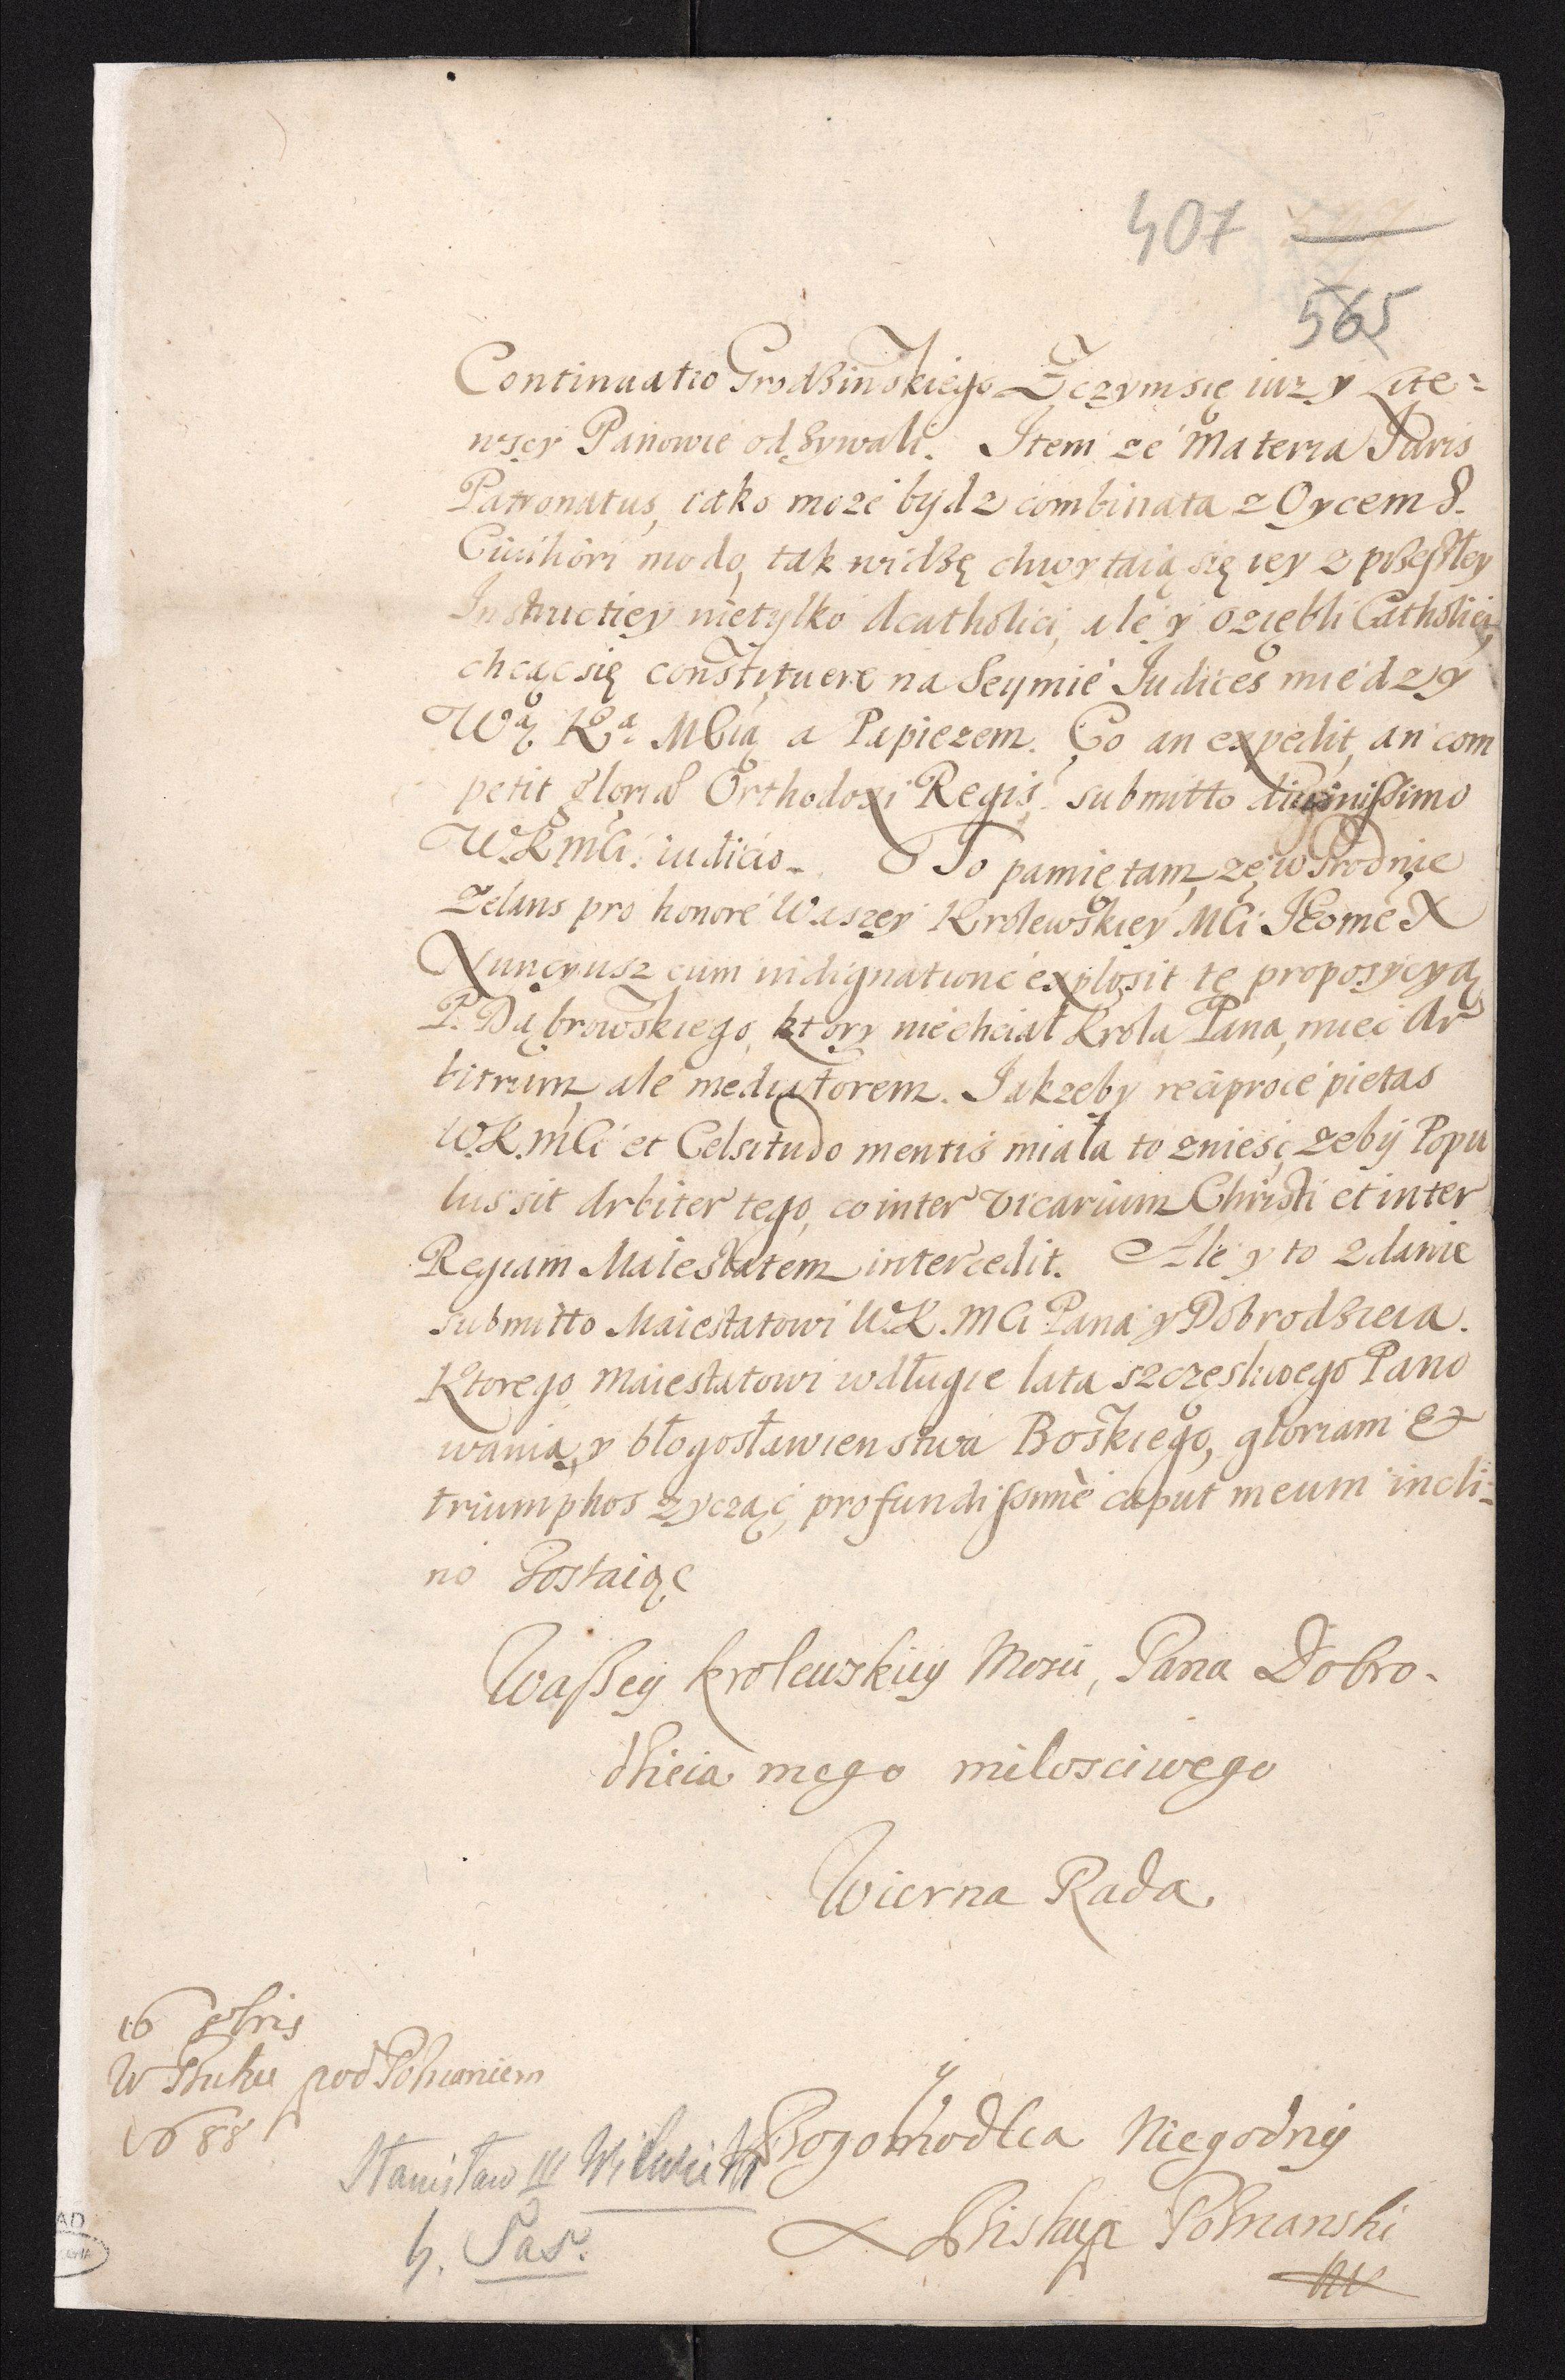 407
565
Continuatio Grodzinskiego Z czym się iuz y Lite=
wscy Panowie odzywali. Item ze Materia Iuris
Patronatus, iako może bydz combinata z Oycem S.
Civiliori modo, tak widzę chwytaią się iey z przeszłey
Instructiey nietylko Acatholici, ale y oziębli Catholici,
chcąc się constituere na Seymie Iudices miedzy
Wą Ką Mcią a Papiezem. Co an expedit, an com
petit gloriae Orthodoxi Regis, submitto divinissimo
W.K.MCi iudicio. To pamiętam, zę w Grodnie
zelans pro honore Waszey Krolewskiey MCi IEome X
Nuncyusz cum indignatione explosit tę proposycyą
P. Dąbrowskiego, ktory niechciał Krola Pana, mieć Ar
bitrum, ale mediatorem. Iakzeby reciproce pietas
W.K.MCi et Celsitudo mentis miała to znieść, zeby Popu
lus sit Arbiter tego, co inter Vicarium Christi et inter
Regiam Maiestatem intercedit. Ale y to zdanie
submitto Maiestatowi W.K.MCi Pana y Dobrodzieia.
Ktorego Maiestatowi w długie lata szczęsliwego Pano
wania, y błogosławienstwa Boskiego, gloriam &
triumphos zycząć, profundissimè caput meum incli=
no Zostaiąc
Waszey krolewskiey Mosci, Pana Dobro-
dzieia mego milosciwego
Wierna Rada
16 9bris
W pod Poznaniem
1688
y
Bogomodlca Niegodny
X Biskup Poznanski
Stanisław III Witwicki
h. Sas.
AD